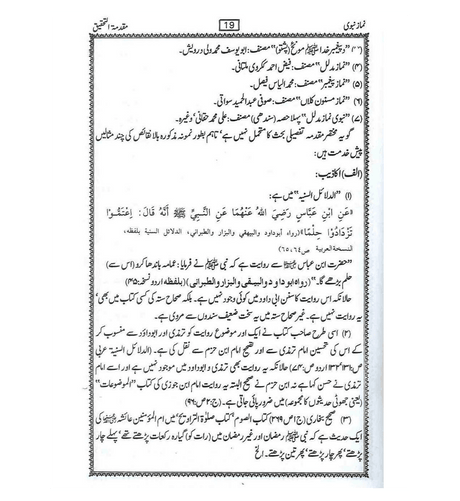 نماز نبوی 19 مقدمۃ التحقیق
(۳) "پیغمبر خدا ﷺ مونځ (پشتو)" مصنف: ابو یوسف محمد ولی درویش۔
(۴) "نماز مدلل" مصنف: فیض احمد ککروی ملتانی۔
(۵) "نماز پیغمبر" مصنف: محمد الیاس فیصل۔
(۶) "نماز مسنون کلاں" مصنف: صوفی عبدالحمید سواتی۔
(۷) "نبوی نماز مدلل" پہلا حصہ (سندھی) مصنف: علی محمد حقانی، وغیرہ۔
گو یہ مختصر مقدمہ تفصیلی بحث کا متحمل نہیں ہے، تاہم بطور نمونہ مذکورہ بالا نقائص کی چند مثالیں
پیش خدمت ہیں:
(الف) اکاذیب:
(۱) "الدلائل السنیہ" میں ہے:
«عَنِ ابْنِ عَبَّاسٍ رَضِيَ اللهُ عَنْهُمَا عَنِ النَّبِيِّ ﷺ أَنَّهُ قَالَ: اِعْتَمُّوا
تَزْدَادُوا حِلْمًا»(رواه أبوداود والبيهقي والبزار والطبراني، الدلائل السنية بلفظه،
النسخة العربية ص٦٤،٦٥)
"حضرت ابن عباس سے روایت ہے کہ نبی ﷺ نے فرمایا: عمامہ باندھا کرو (اس سے)
حلم بڑھے گا۔" (رواہ ابوداود والبیہقی والبزار والطبرانی) (بلفظہ اردو نسخہ:۳۵)
حالانکہ اس روایت کا سنن ابی داود میں کوئی وجود نہیں ہے۔ بلکہ صحاح ستہ کی کسی کتاب میں بھی،
یہ روایت نہیں ہے۔ غیر صحاح ستہ میں یہ سخت ضعیف سندوں سے مروی ہے۔
(۲) اسی طرح صاحب کتاب نے ایک اور موضوع روایت کو ترمذی اور ابوداؤد سے منسوب کر
کے اس کی تحسین امام ترمذی سے اور تصحیح امام ابن حزم سے نقل کی ہے۔ (الدلائل السنیہ عربی
ص:۱۳۱،۱۳۲ اردو ص:۷۳) حالانکہ یہ روایت بھی ترمذی و ابوداود میں موجود نہیں ہے اور اسے امام
ترمذی نے حسن کہا ہے نہ ابن حزم نے صحیح البتہ یہ روایت امام ابن جوزی کی کتاب "الموضوعات"
(یعنی جھوٹی حدیثوں کا مجموعہ) میں ضرور پائی جاتی ہے۔ (ج:۲ ص:۹۶)
(۳) صحیح بخاری (ج۱ ص۲۶۹ کتاب الصوم، کتاب صلوٰۃ التراویح) میں ام المؤمنین عائشہ کی
ایک حدیث ہے کہ نبی ﷺ رمضان اور غیر رمضان میں (رات کو) گیارہ رکعات پڑھتے تھے، پہلے چار
پڑھتے، پھر چار پڑھتے، پھر تین پڑھتے۔ الخ